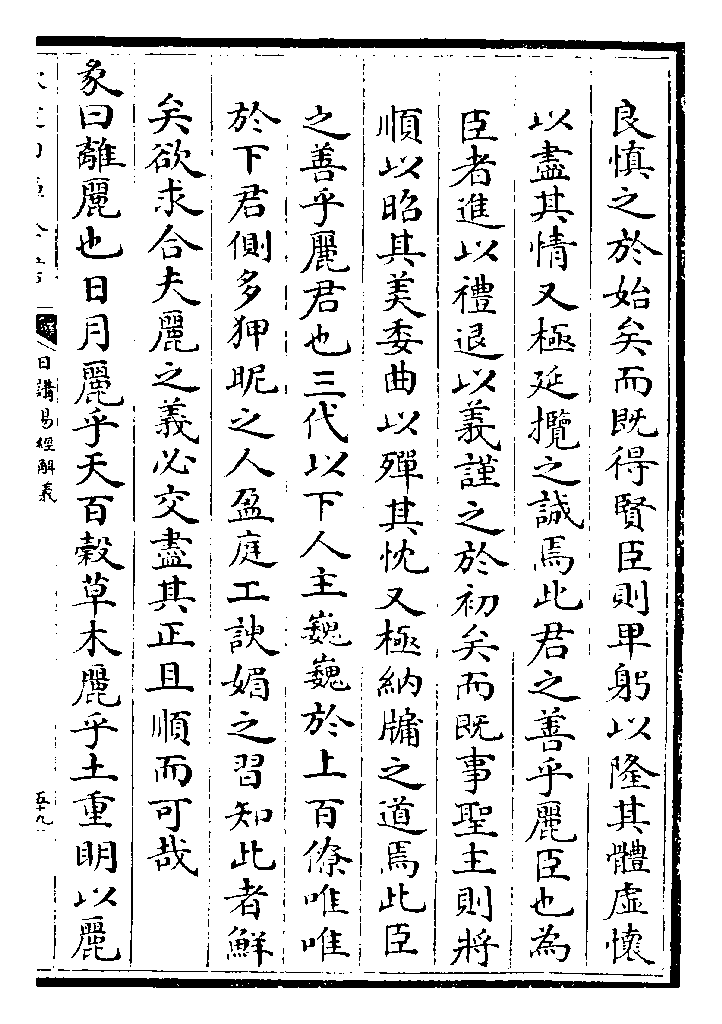 良慎之於始矣而既得賢臣則卑躬以隆其體虛懷
以盡其情又極延攬之誠焉此君之善乎麗臣也為
臣者進以禮退以義謹之於初矣而既事聖主則將
順以昭其美委曲以殫其忱又極納牖之道焉此臣
之善乎麗君也三代以下人主巍巍於上百僚唯唯
於下君側多狎昵之人盈庭工諛媚之習知此者鮮
矣欲求合夫麗之義必交盡其正且順而可哉
彖曰離麗也日月麗乎天百穀草木麗乎土重明以麗
日講易經解義
五十九